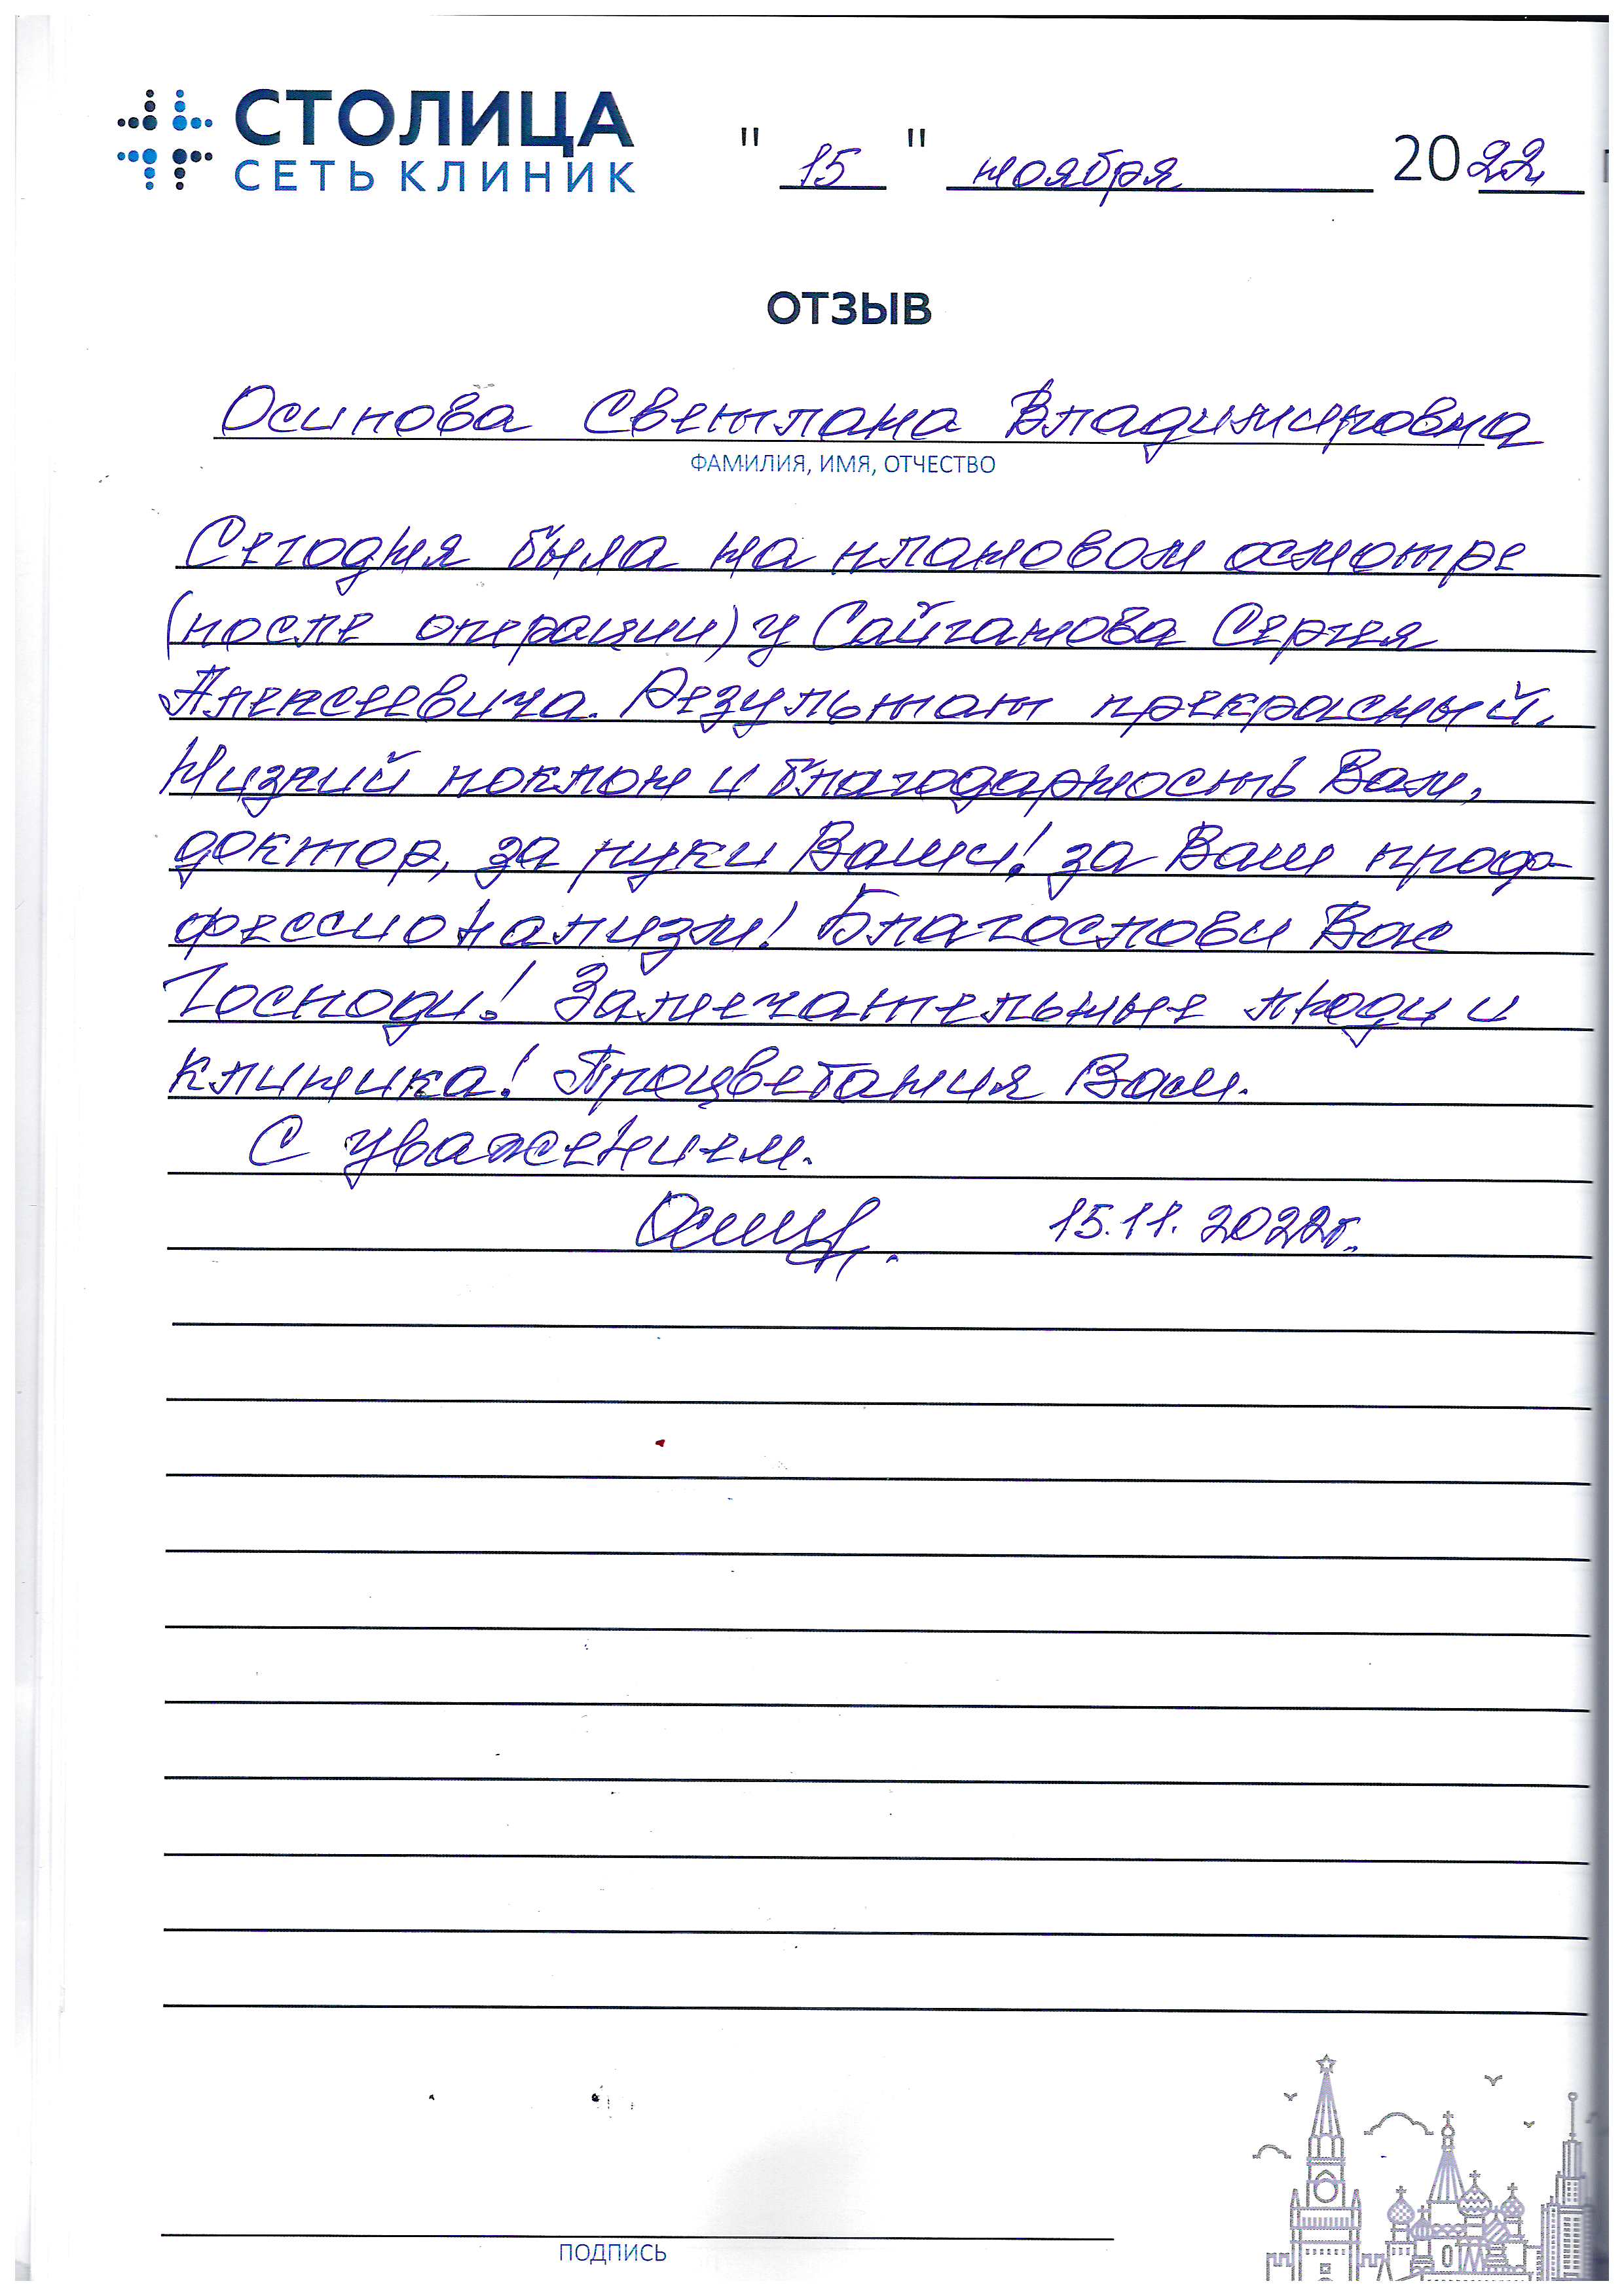 СТОЛИЦА
СЕТЬ КЛИНИК
" 15 " ноября 2022 г
ОТЗЫВ
Осипова Светлана Владимировна
ФАМИЛИЯ, ИМЯ, ОТЧЕСТВО
Сегодня была на плановом осмотре
(после операции) у Сайганова Сергея
Алексеевича. Результат прекрасный.
Низкий поклон и благодарность Вам,
доктор, за руки Ваши! за Ваш проф-
фессионализм! Благослови Вас
Господи! Замечательные люди и
клиника! Процветания Вам.
С уважением.
15.11.2022г.
ПОДПИСЬ